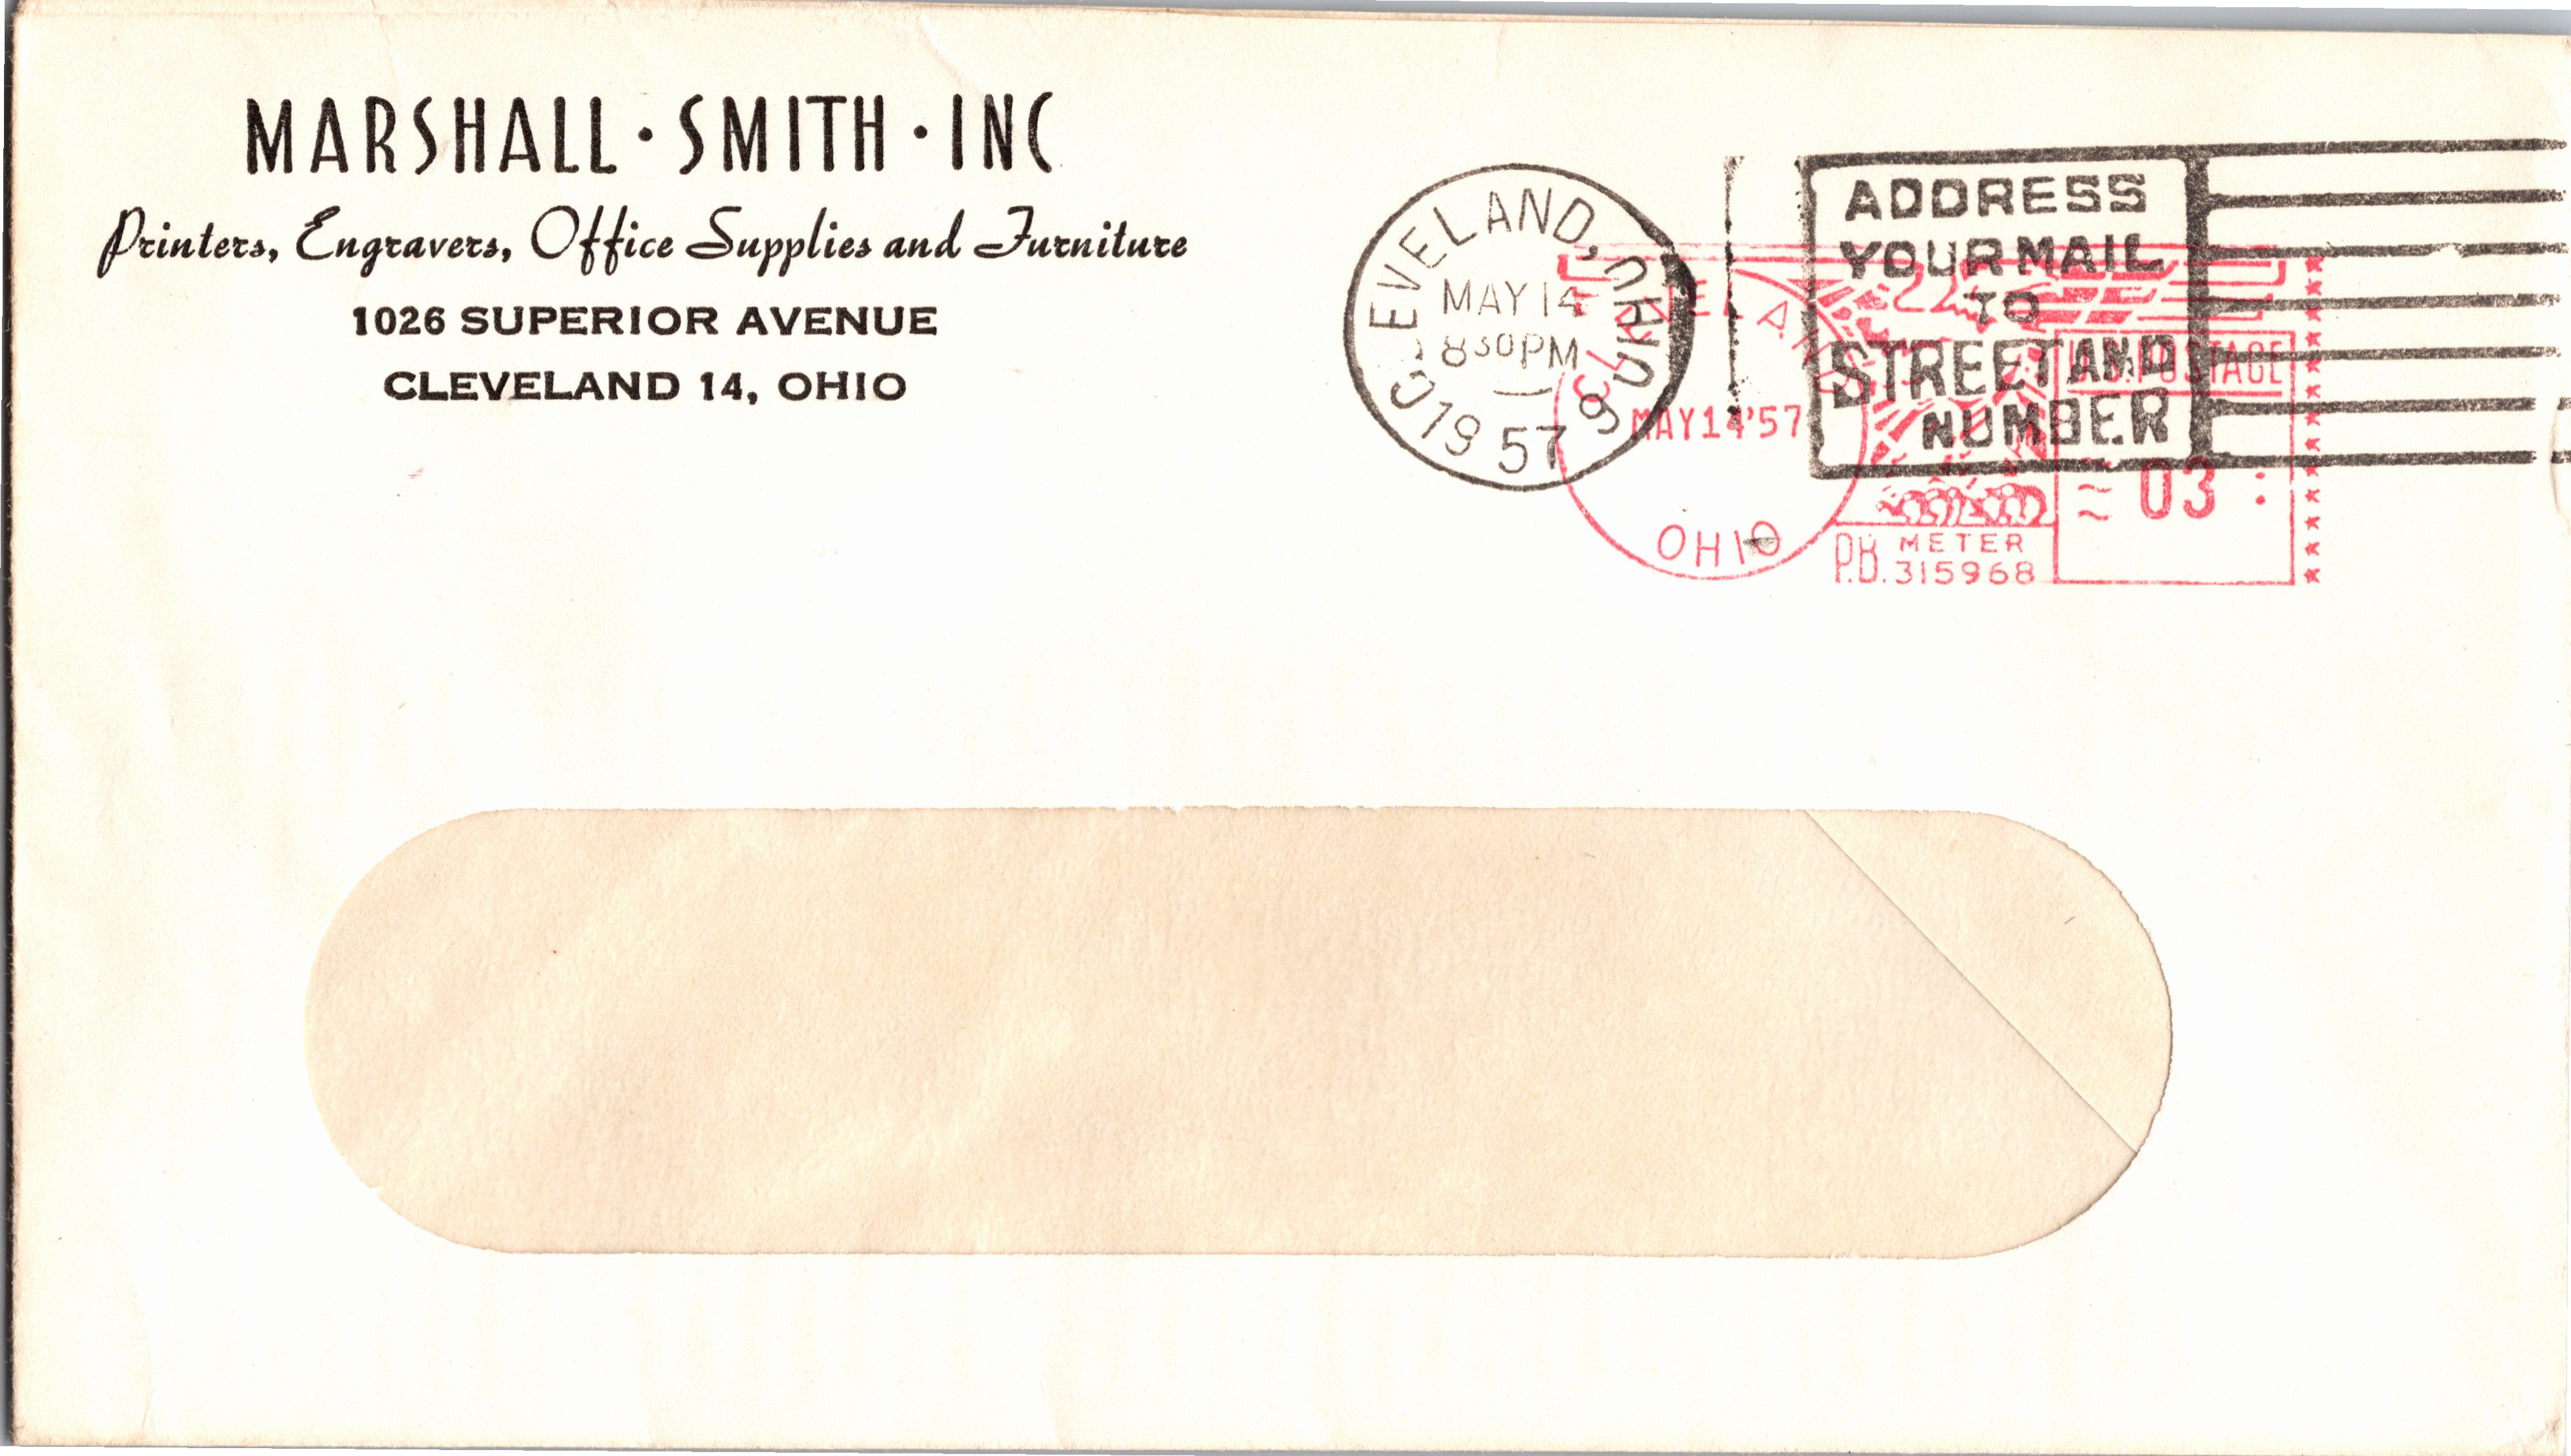 MARSHALL · SMITH · INC
Printers, Engravers, Office Supplies and Furniture
1026 SUPERIOR AVENUE
CLEVELAND 14, OHIO
CLEVELAND, OHIO
MAY 14
8 30 PM
1957
9
ADDRESS
YOUR MAIL
TO
STREET AND
NUMBER
CLEVELAND
MAY 14 '57
OHIO
U.S. POSTAGE
03
P.B. METER
315968